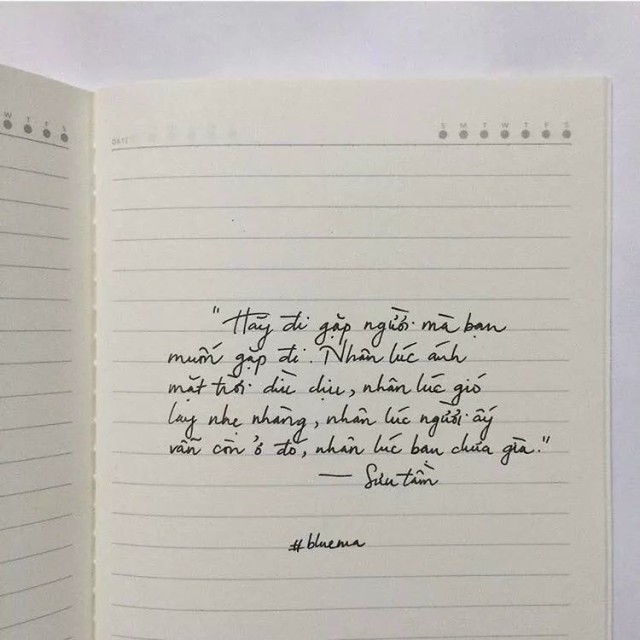 W T F S
DATE
S M T W T F S
"Hãy đi gặp người mà bạn
muốn gặp đi. Nhân lúc ánh
mặt trời dìu dịu, nhân lúc gió
lay nhẹ nhàng, nhân lúc người ấy
vẫn còn ở đó, nhân lúc bạn chưa già."
— Sưu tầm
#bluema